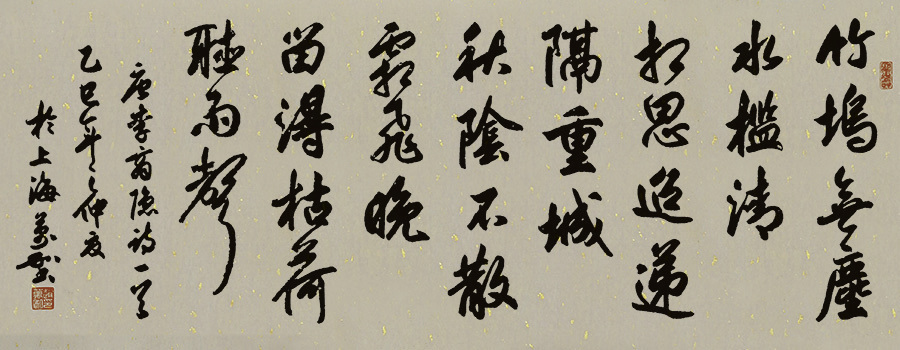 竹塢無塵
水檻清
相思迢遞
隔重城
秋陰不散
霜飛晚
留得枯荷
聽雨聲
唐李商隱詩一首
乙巳年仲夏
於上海